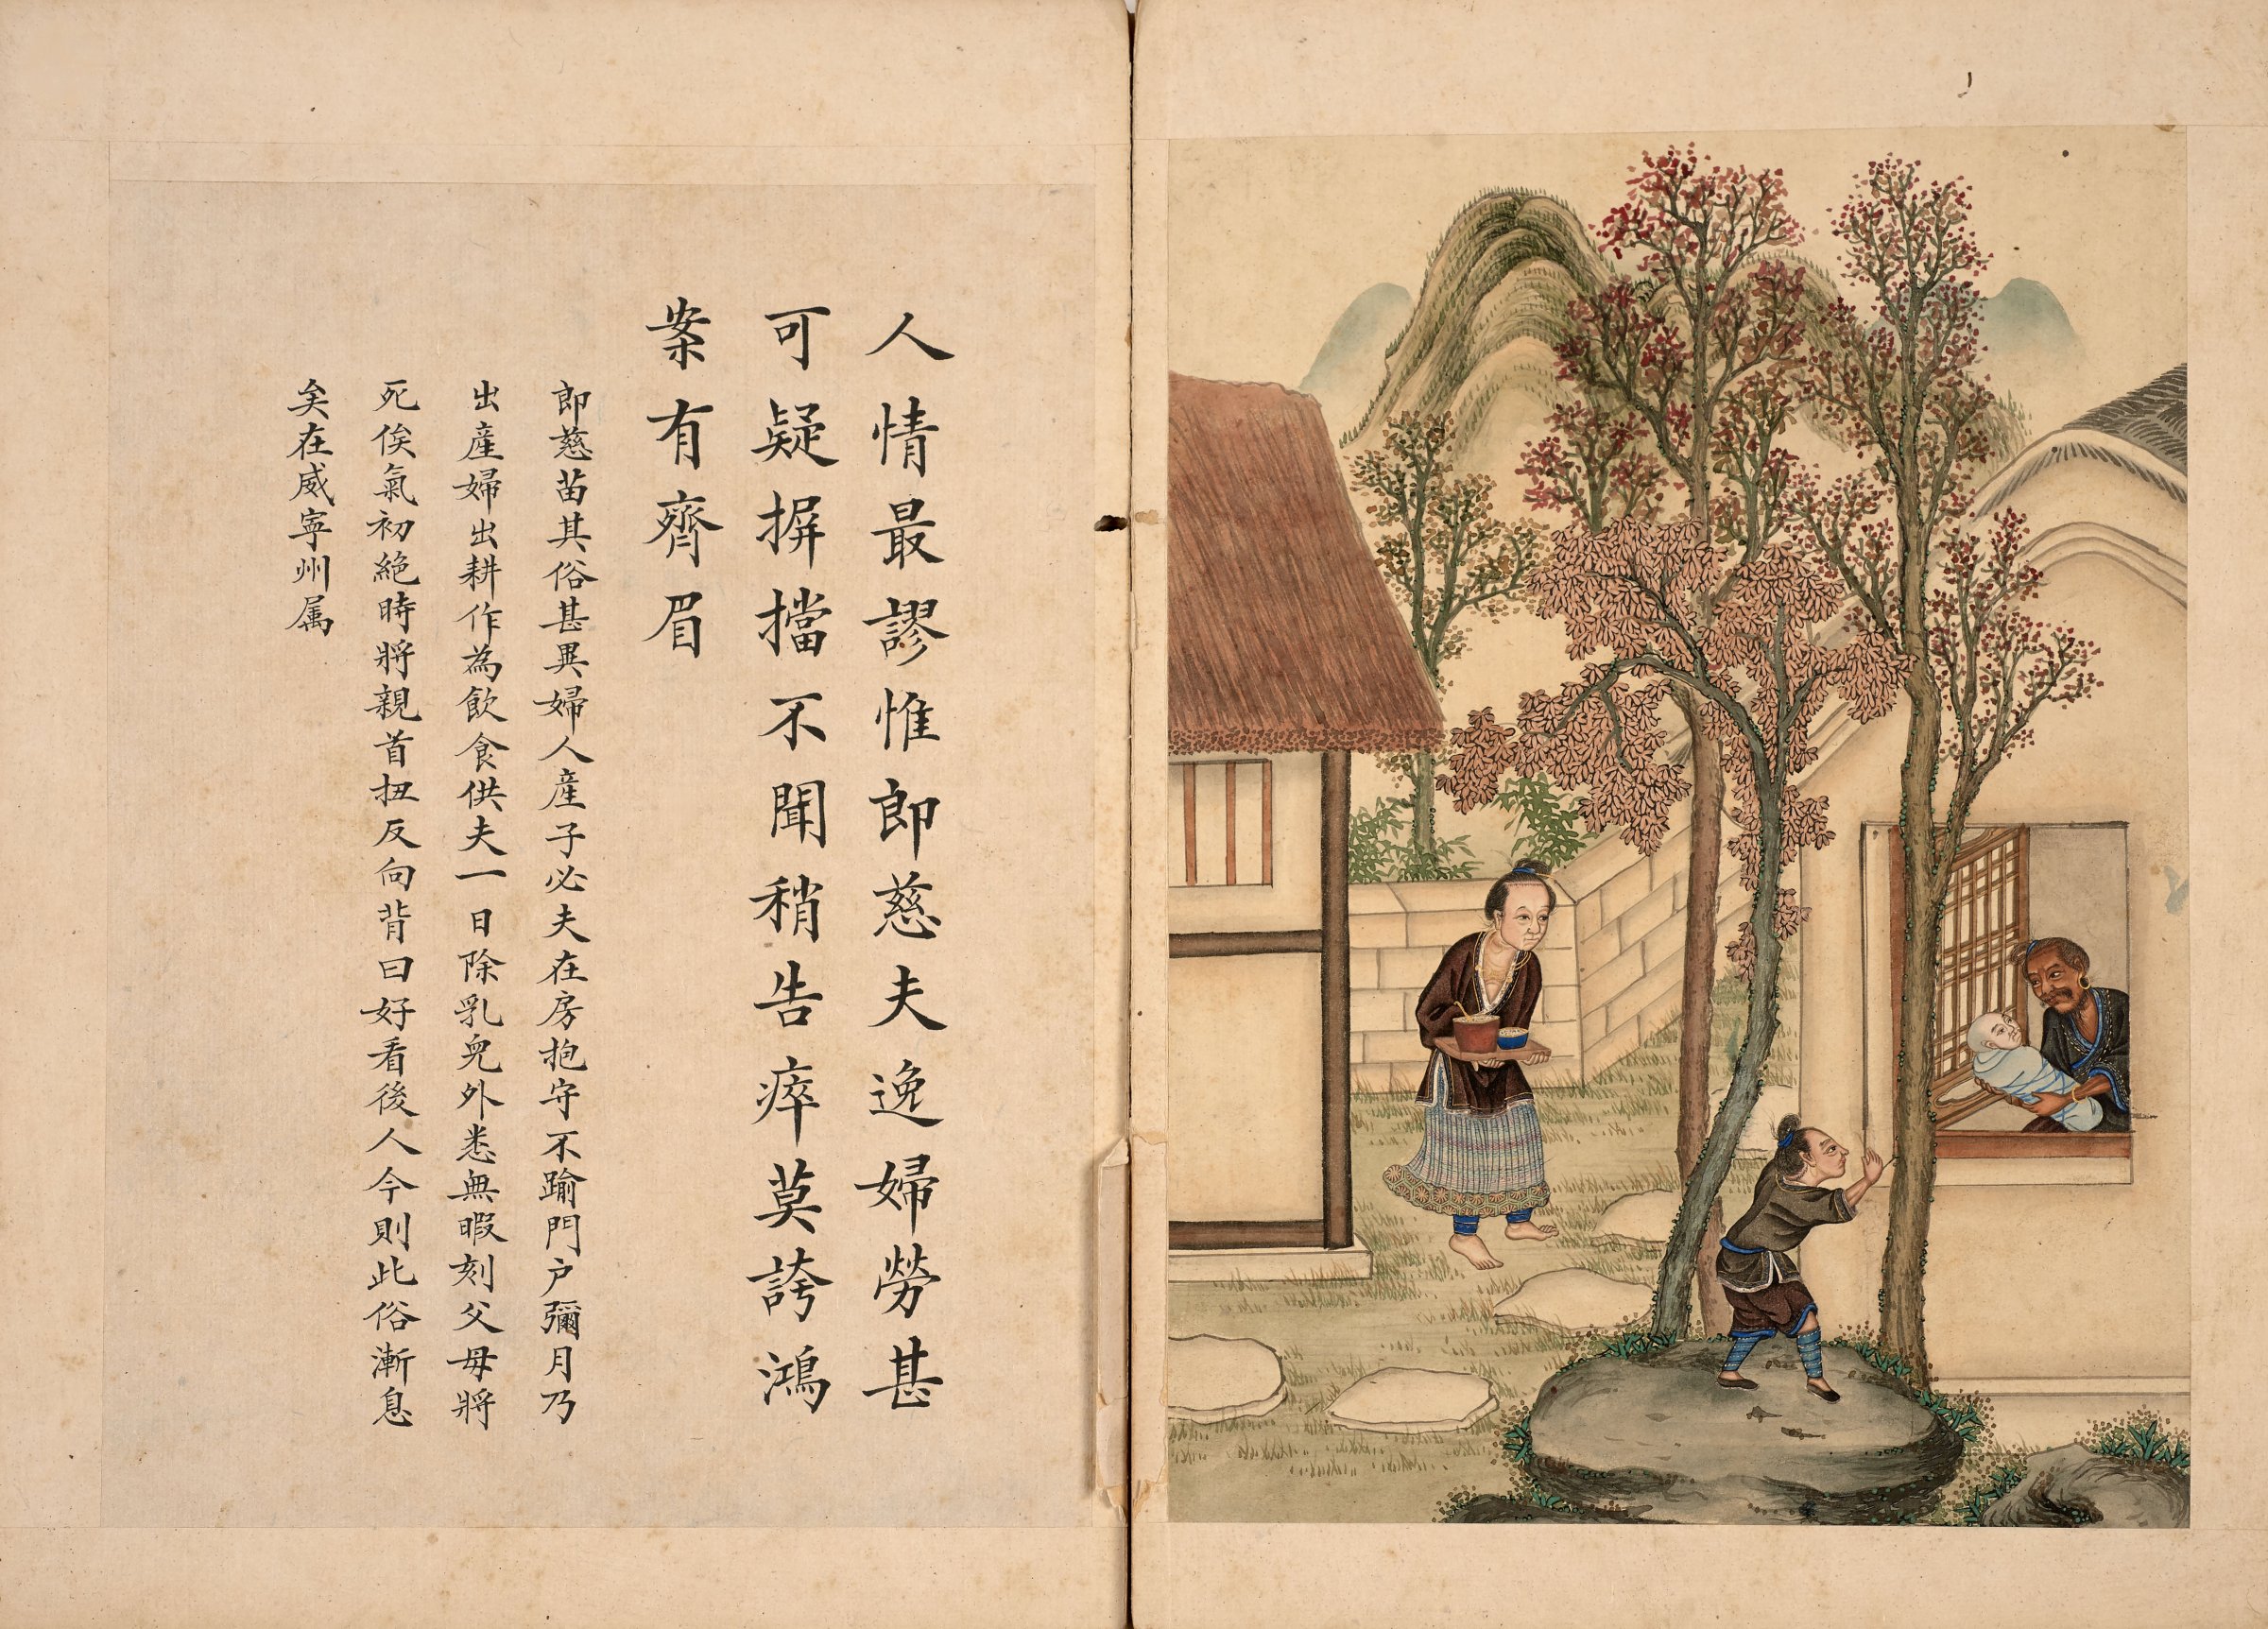 人情最謬惟郎慈夫逸婦勞甚
可疑摒擋不聞稍告瘁莫誇鴻
案有齊眉
郎慈苗其俗甚異婦人産子必夫在房抱守不踰門户彌月乃
出産婦出耕作為飲食供夫一日除乳兒外悉無暇刻父毋將
死俟氣初絶時將親首扭反向背曰好看後人今則此俗漸息
矣在威寧州属